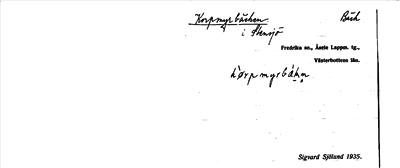 Korpmyrbäcken Bäck
i Stensjö
Fredrika sn., Åsele Lappm. tg.,
Västerbottens län.
Sigvard Sjölund 1935.